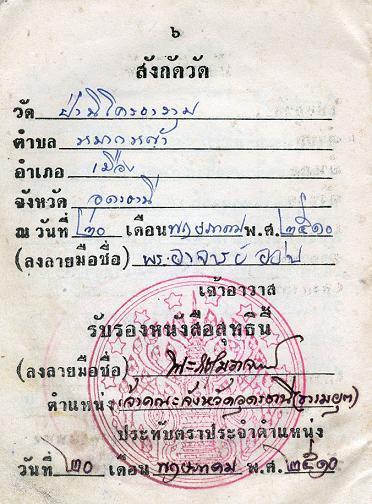 ๖
สังกัดวัด
วัด ป่านิโครธาราม
ตำบล หมากหญ้า
อำเภอ เมือง
จังหวัด อุดรธานี
ณ วันที่ ๒๐ เดือน พฤษภาคม พ.ศ. ๒๕๑๐
(ลงลายมือชื่อ) พระอาจารย์ อ่อน
เจ้าอาวาส
รับรองหนังสือสุทธินี้
(ลงลายมือชื่อ)
ตำแหน่ง เจ้าคณะจังหวัดอุดรธานี (ธรรมยุต)
ประทับตราประจำตำแหน่ง
วันที่ ๒๐ เดือน พฤษภาคม พ.ศ. ๒๕๑๐